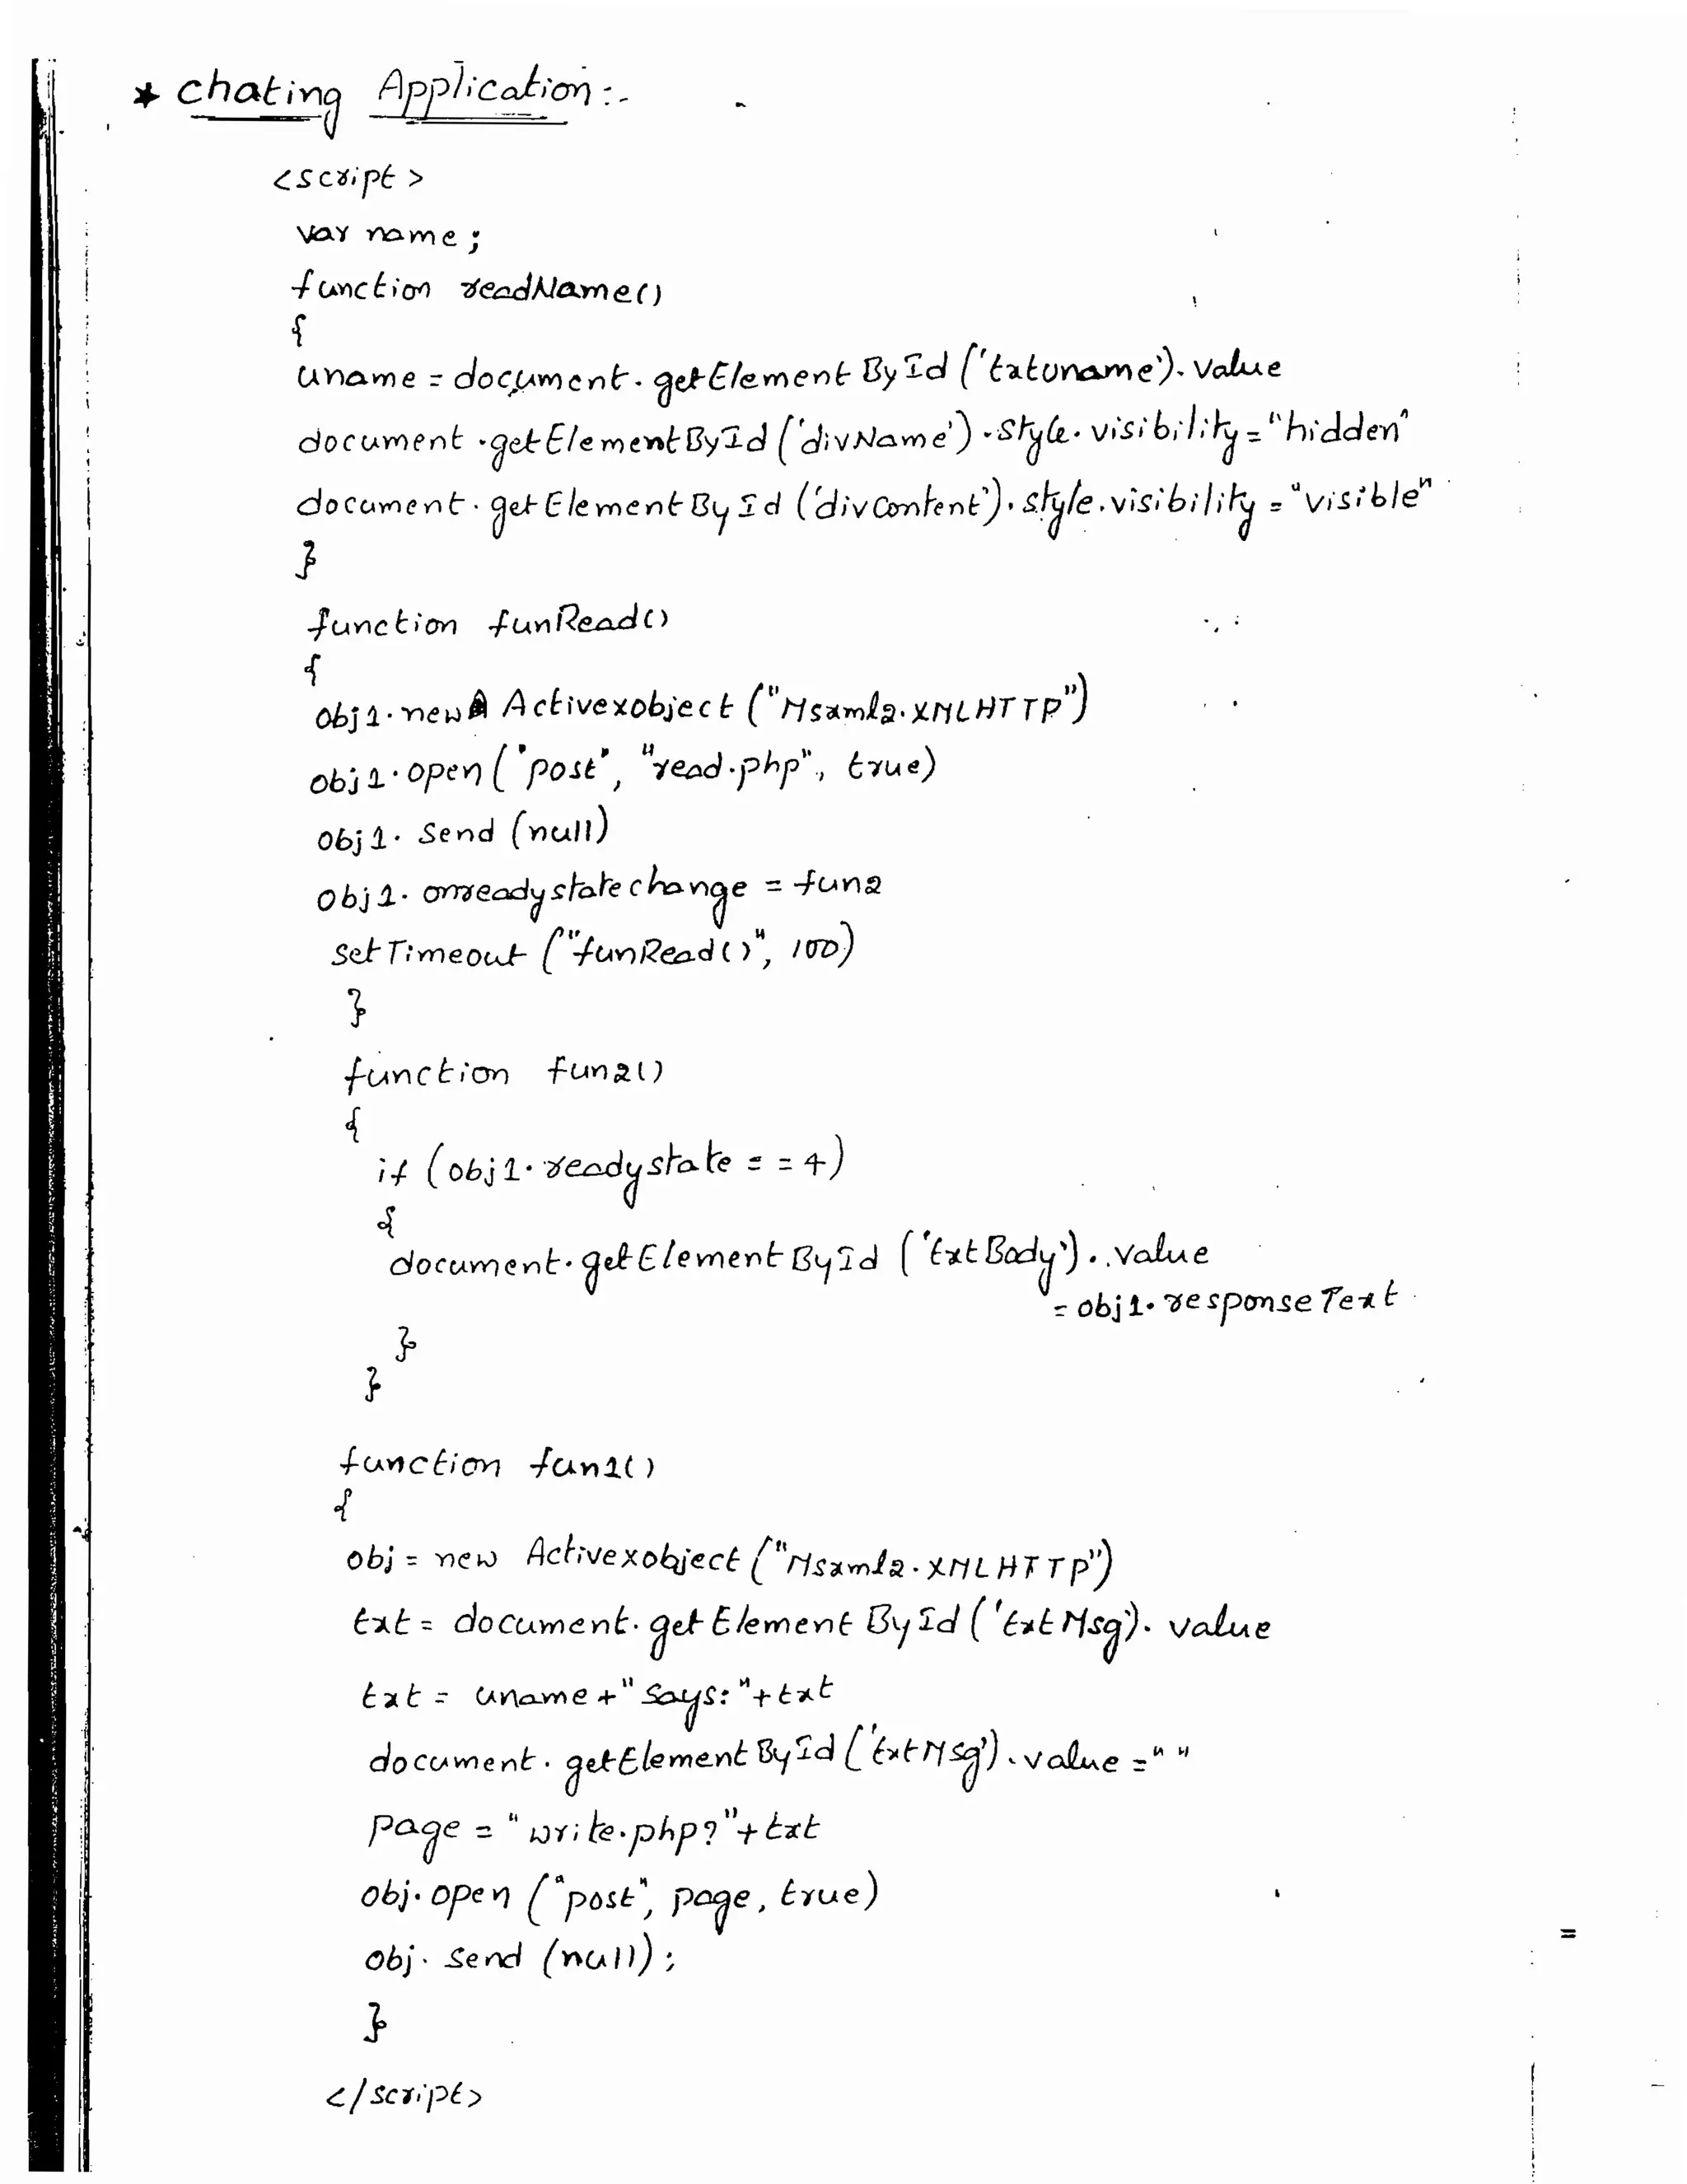 * chating Application :-
<script>
var name ;
function readName()
{
uname = document.getElementById ('txtuname').value
document.getElementById ('divName').style.visibility = "hidden"
document.getElementById ('divContent').style.visibility = "visible"
}
function funRead()
{
obj1.new Activexobject ("Msxml2.XMLHTTP")
obj1.open ("post", "read.php", true)
obj1.send (null)
obj1.onreadystatechange = fun2
setTimeout ("funRead()", 100)
}
function fun2()
{
if (obj1.readystate = = 4)
{
document.getElementById ('txtBody')..value
= obj1.responseText
}
}
function fun1()
{
obj = new Activexobject ("Msxml2.XMLHTTP")
txt = document.getElementById ('txtMsg').value
txt = uname+" says: "+txt
document.getElementById ('txtMsg').value =" "
page = "write.php?"+txt
obj.open ("post", page, true)
obj.send (null) ;
}
</script>